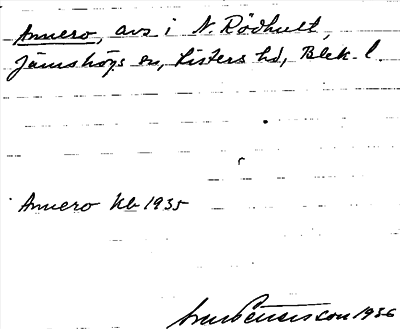 Annero, avs i N. Rödhult,
Jämshögs sn, Listers hd, Blek. l.
Annero Kb 1935
1936